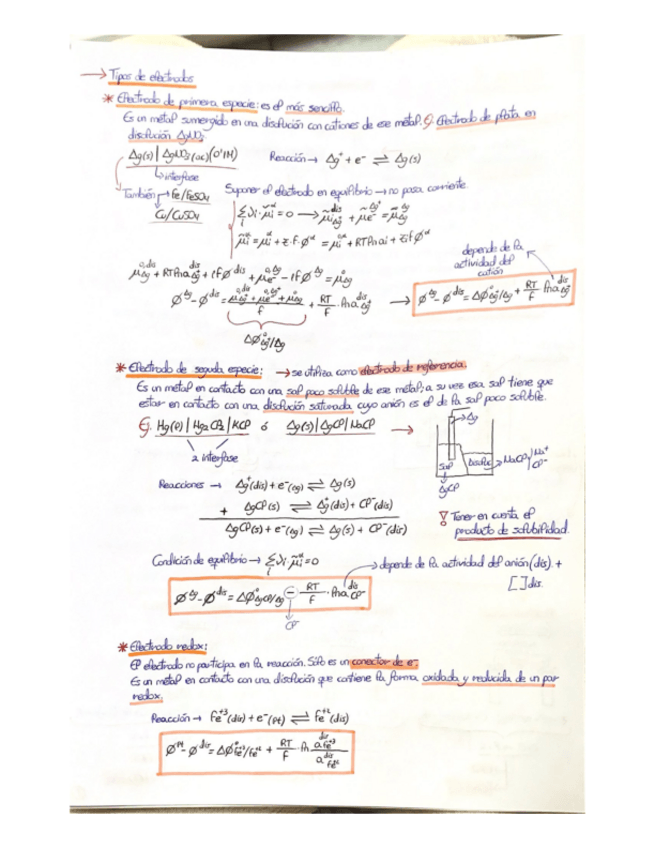 → Tipos de electrodos
* Electrodo de primera especie: es el más sencillo.
Es un metal sumergido en una disolución con cationes de ese metal. Ej. Electrodo de plata en
disolución AgNO3.
Ag(s) | AgNO3 (ac) (0'1M) Reacción → Ag⁺ + e⁻ ⇌ Ag(s)
↳ interfase
También → Fe/FeSO4
Cu/CuSO4
Suponer el electrodo en equilibrio → no pasa corriente
depende de la
actividad del
catión
* Electrodo de segunda especie: → se utiliza como electrodo de referencia.
Es un metal en contacto con una sal poco soluble de ese metal; a su vez esa sal tiene que
estar en contacto con una disolución saturada cuyo anión es el de la sal poco soluble.
Ej. Hg(l) | Hg2Cl2 | KCl ó Ag(s) | AgCl | NaCl →
2 interfase
→ Ag
Sal
→ NaCl Na⁺
Cl⁻
AgCl
Reacciones → Ag⁺(dis) + e⁻(Ag) ⇌ Ag(s)
+ AgCl(s) ⇌ Ag⁺(dis) + Cl⁻(dis)
AgCl(s) + e⁻(Ag) ⇌ Ag(s) + Cl⁻(dis)
! Tener en cuenta el
producto de solubilidad.
Condición de equilibrio → Σ νi · μ̃i^α = 0
→ depende de la actividad del anión (dis). +
[ ] dis.
ø^Ag - ø^dis = Δø°AgCl/Ag - RT/F · ln a^dis Cl⁻
Cl⁻
* Electrodo redox:
El electrodo no participa en la reacción. Sólo es un conector de e⁻
Es un metal en contacto con una disolución que contiene la forma oxidada y reducida de un par
redox.
Reacción → Fe⁺³(dis) + e⁻(Pt) ⇌ Fe⁺²(dis)
ø^Pt - ø^dis = Δø°Fe⁺³/Fe⁺² + RT/F · ln a^dis Fe⁺³ / a^dis Fe⁺²